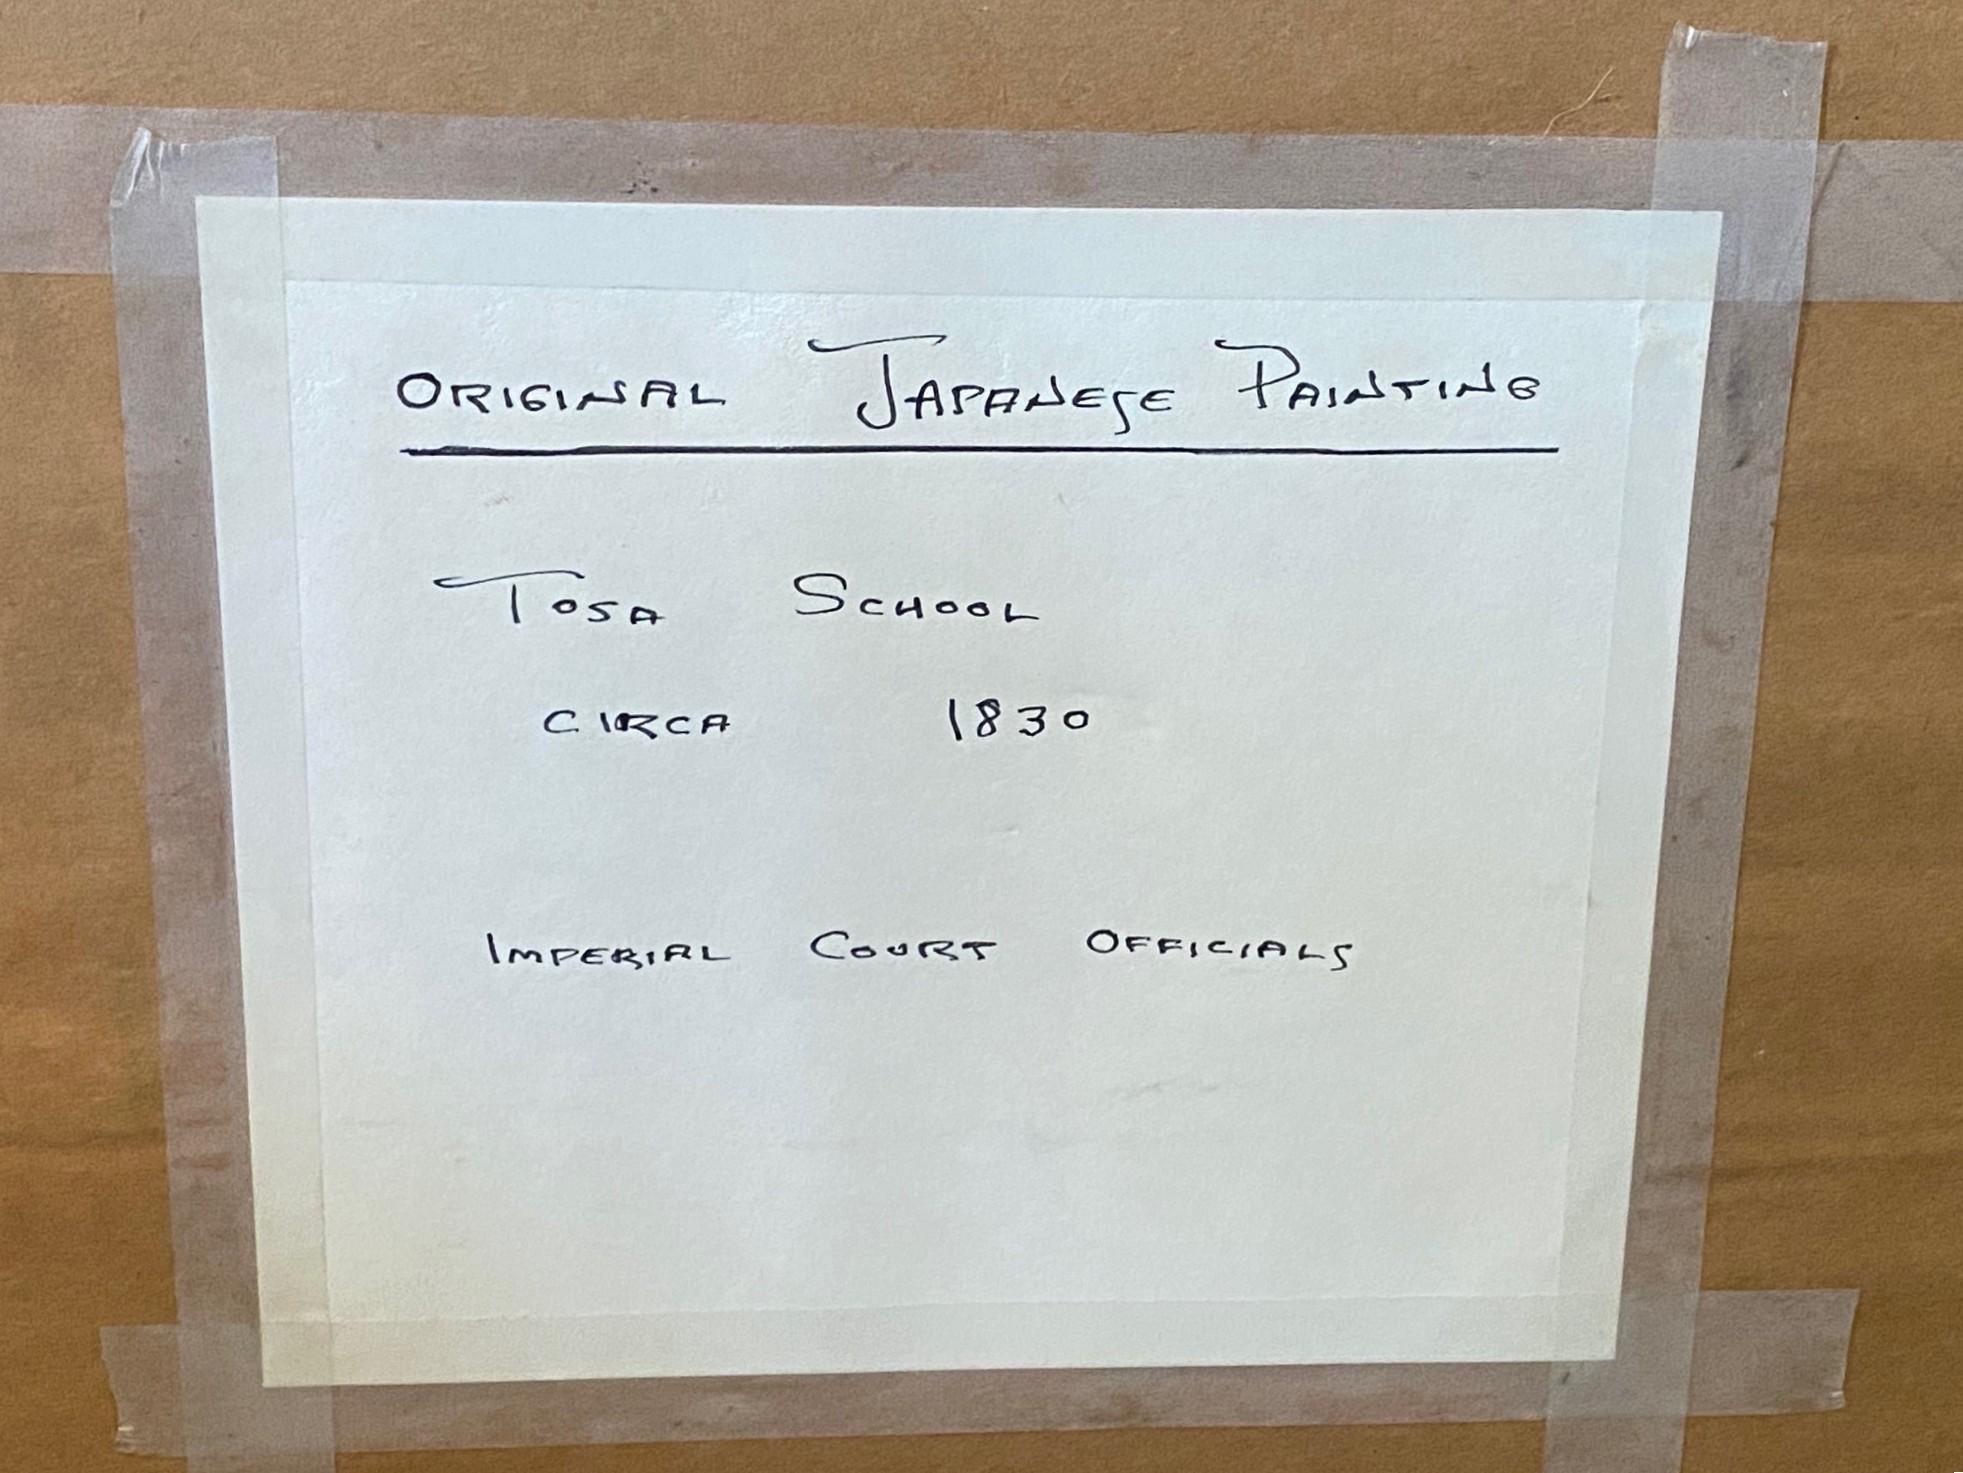 ORIGINAL JAPANESE PAINTING
TOSA SCHOOL
CIRCA 1830
IMPERIAL COURT OFFICIALS